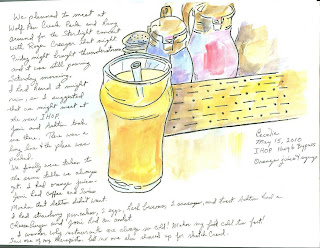 We planned to meet at
Wolf Pen Creek Park and Ring
around for the Starlight concert
with Roger Creager that night
Friday night brought thunderstorms
and it was still pouring
Saturday morning.
I had heard it might
rain, so I suggested
that we might meet at
the new IHOP.
Joni and Ashton took
me there. There was a
long line & the place was
packed.
We finally were taken to
the same table we always
get. I had orange juice.
Joni had coffee and Swiss
Mocha that Ashton didn't want.
I had strawberry pancakes, 2 eggs, hash browns, 2 sausages, and toast. Ashton had a
Cheeseburger and Joni had an omelet.
I wonder why restaurants are always so cold! Makes my feet cold too fast!
Just one of my thoughts. but no one else showed up for Sketch Crawl.
Cecelia
May 15, 2010
IHOP Hwy 6 Bypass
Orange juice & syrup